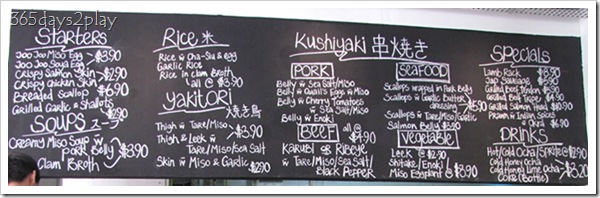 365days2play
Starters
Joo Joo Miso Egg $3.90
Joo Joo Soya Egg
Crispy Salmon Skin $2.90
Crispy Chicken Skin
Breaded Scallop $6.90
Grilled Garlic & Shallots $2.90
Soups スープ
Creamy Miso Soup w Pork Belly $3.90
Clam Broth
Rice 米
Rice w Cha-Siu & egg
Garlic Rice
Rice in clam Broth
all @ $4.90
Yakitori 焼き鳥
Thigh w Tare/Miso/ $3.90
Thigh & Leek w
Tare/Miso/Sea Salt
Skin w Miso & Garlic $2.90
Kushiyaki 串焼き
Pork
Belly w Sea Salt/Miso
Belly w Quail's Eggs w Miso
Belly w Cherry Tomatoes
w Sea Salt
Belly w Enoki all @ $4.90
Beef
Karubi or Ribeye
w Tare/Miso/Sea Salt/
Black Pepper
Seafood
Scallops wrapped in Pork Belly
Scallops w Garlic Butter
Scallops w Tare/Miso/Sea Salt
Salmon Belly $5.90
Vegetable
Leek @ $2.90
Shitake/Enoki/
Miso Eggplant @ $3.90
Specials
Lamb Rack
Jap Sausage
Grilled Beef Tendon
Grilled Beef Tripe
Grilled Salmon Head
Prawn w Indian Spices
Okra
Drinks
Hot/Cold Ocha/Sprite @ $2.90
Cold Honey Ocha
Cold Honed Lime Ocha $3.20
Coke (Bottle)